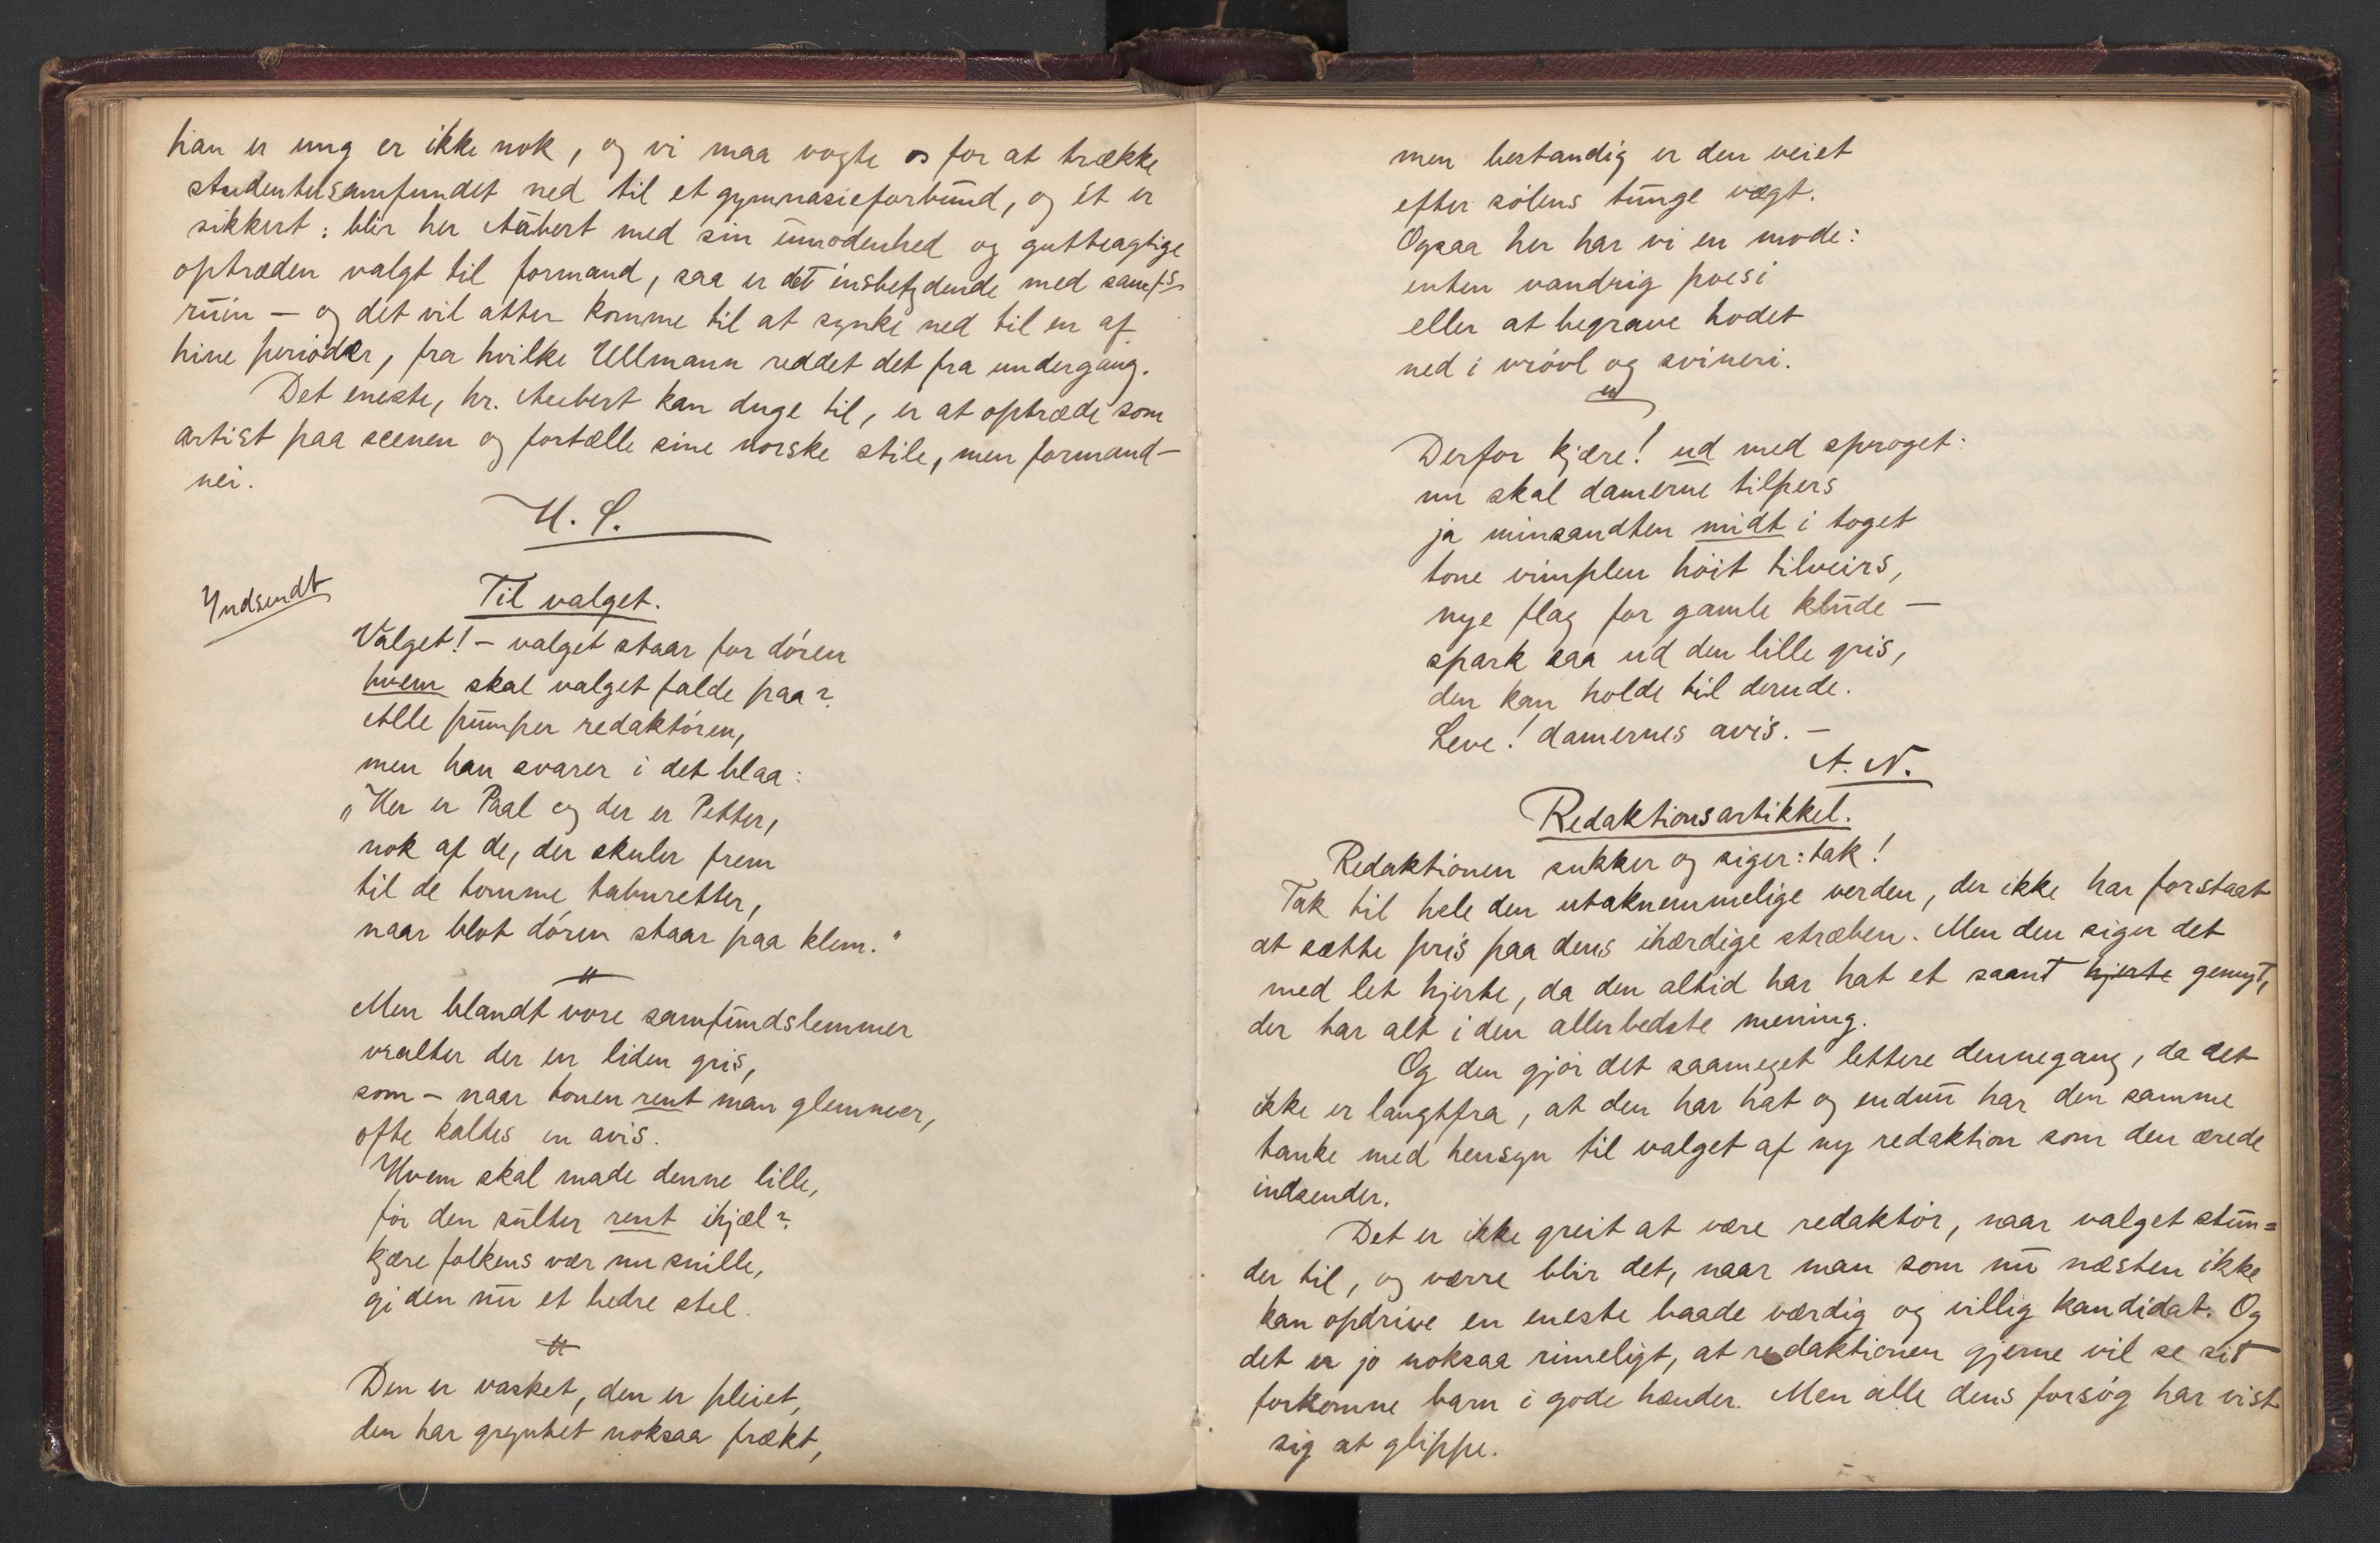 han er ung er ikke nok, og vi maa vogte os for at trække
studentersamfundet ned til et gymnasieforbund, og ét er
sikkert: blir her Aubert med sin umodenhed og gutteagtige
optræden valgt til formand, saa er det énsbetydende med samf's
ruin — og det vil atter komme til at synke ned til en af
hine perioder, fra hvilke Ullmann reddet det fra undergang.
Det eneste, hr. Aubert kan duge til, er at optræde som
artist paa scenen og fortælle sine norske stile, men formand —
nei.
U. S.
Indsendt
Til valget.
Valget! — valget staar for døren
hvem skal valget falde paa?
Alle pumper redaktøren,
men han svarer i det blaa:
„Her er Paal og der er Petter,
nok af de, der skuler frem
til de tomme taburetter,
naar blot døren staar paa klem."
Men blandt vore samfundslemmer
vralter der en liden gris,
som — naar tonen rent man glemmer,
ofte kaldes en avis.
Hvem skal made denne lille,
før den sulter rent ihjæl?
kjære folkens vær nu snille,
gi den nu et bedre stel.
Den er vasket, den er pleiet,
den har gryntet noksaa frækt,
men bestandig er den veiet
efter sølens tunge vægt.
Ogsaa her har vi en mode:
enten vandrig poesi
eller at begrave hodet
ned i vrøvl og svineri.
Derfor kjære! ud med sproget:
nu skal damerne tilpers
ja minsandten midt i toget
tone vimplen høit tilveirs,
nye flag for gamle klude —
spark saa ud den lille gris,
den kan holde til derude.
Leve! damernes avis. —
A. N.
Redaktionsartikkel.
Redaktionen sukker og siger: tak!
Tak til hele den utaknemmelige verden, der ikke har forstaat
at sætte pris paa dens ihærdige stræben. Men den siger det
med let hjerte, da den altid har hat et saant hjerte gemyt,
der har alt i den allerbedste mening.
Og den gjør det saameget lettere dennegang, da det
ikke er langtfra, at den har hat og endnu har den samme
tanke med hensyn til valget af ny redaktion som den ærede
indsender.
Det er ikke greit at være redaktør, naar valget stun=
der til, og værre blir det, naar man som nu næsten ikke
kan opdrive en eneste baade værdig og villig kandidat. Og
det er jo noksaa rimeligt, at redaktionen gjerne vil se sit
forkomne barn i gode hænder. Men alle dens forsøg har vist
sig at glippe.